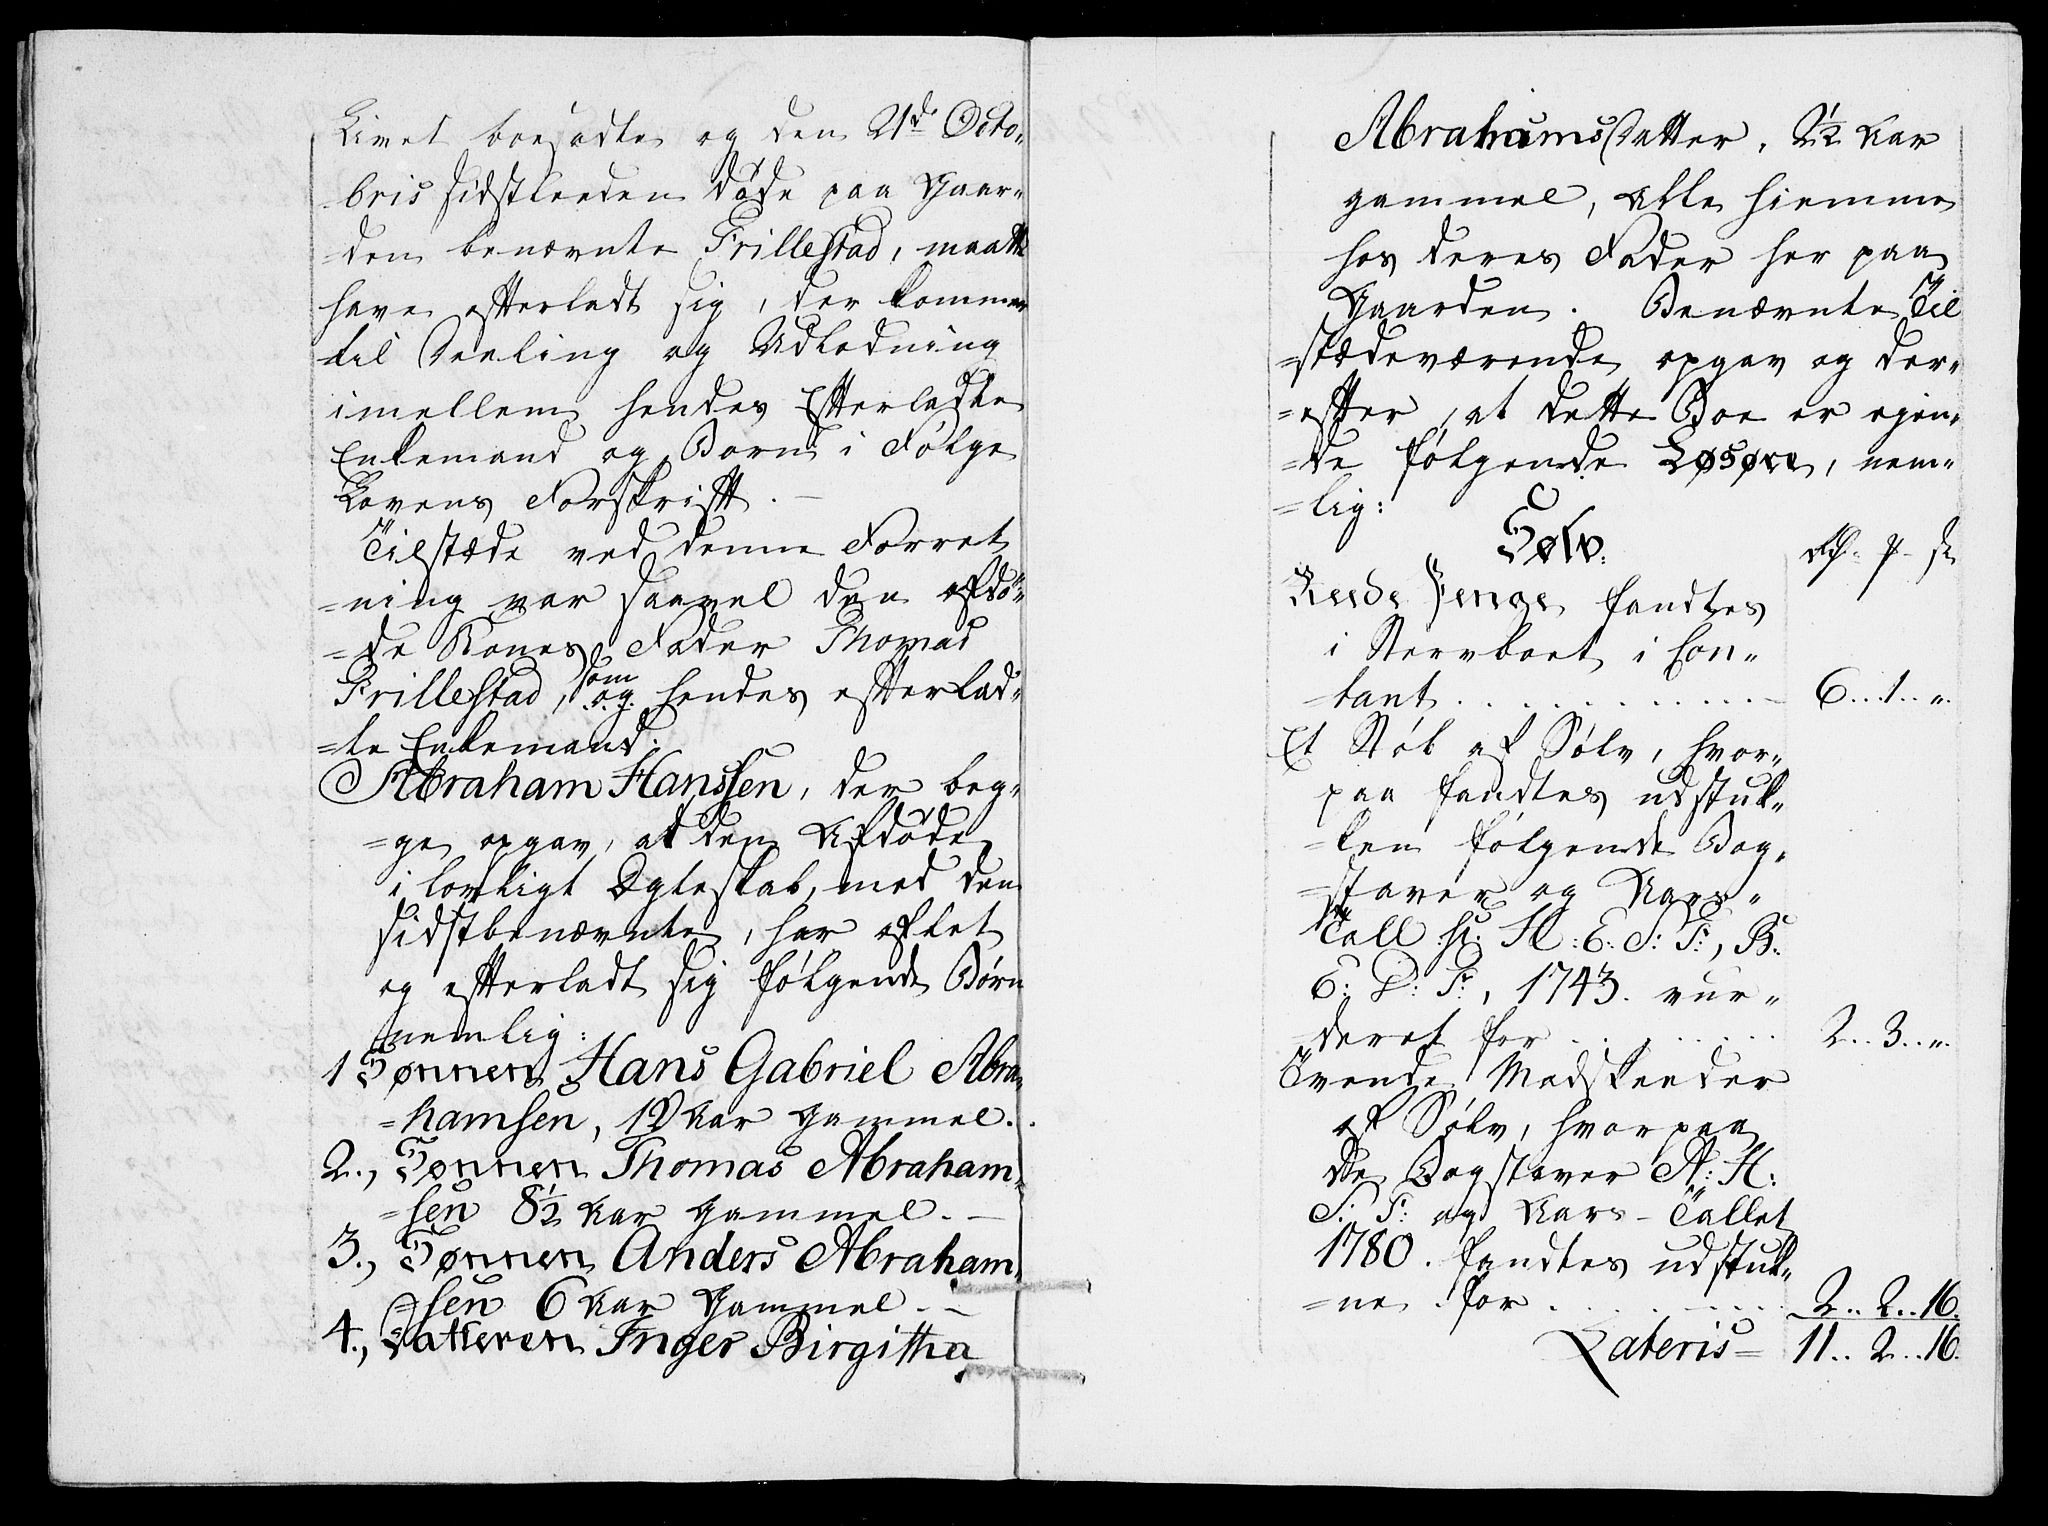 Livet boesadte og den 21de Octo-
bris sidstleeden døde paa Gaar-
=den benævnte Frillestad, maatte
have efterladt sig, der kommer
til Deeling og Udlodning
imellem hendes Efterladte
Enkemand og Børn i Følge
Lovens Forskrift. —
Tilstæde ved denne Forret
=ning var saavel den afdø-
=de Kones Fader Thomas
Frillestad, som og hendes efterlad-
=te Enkemand.
Abraham Hanssen, der beg-
=ge opgav, at den Afdøde
i lovligt Ægteskab, med den
sidstbenævnte, har aflet
og efterladt sig følgende Børn
nemlig:
1 Sønnen Hans Gabriel Abra-
=hamsen, 12 Aar Gammel.
2., Sønnen Thomas Abraham-
=sen 8½ Aar Gammel. —
3., Sønnen Anders Abraham-
=sen 6 Aar Gammel. —
4., Datteren Inger Birgitha
Abrahams Datter, 2½ Aar
gammel, Alle hiemme
hos deres Fader her paa
Gaarden. Benævnte Til
=stædeværende opgav og der-
=efter, at dette Boe er ejen-
=de følgende Løsøre, nem-
=lig:
Sølv.
Reede Penge fandtes
i Stervboet i Con-
=tant . . . . . . . . . . 6..1..„.
Et Støb af Sølv, hvor-
paa fandtes udstuk-
=ken følgende Bog-
=staver og Aars-
Tall H: E: S: F:, B:
E: D: F:, 1743. vur-
=deret for . . . . . . . 2..3..„.
Tvende Madskeeder
af Sølv, hvorpaa
de Bogstaver A: H:
S: F: og Aars-Tallet
1780. fandtes udstuk-
=ne for . . . . . . . 2..2..16.
Lateris = 11..2..16.